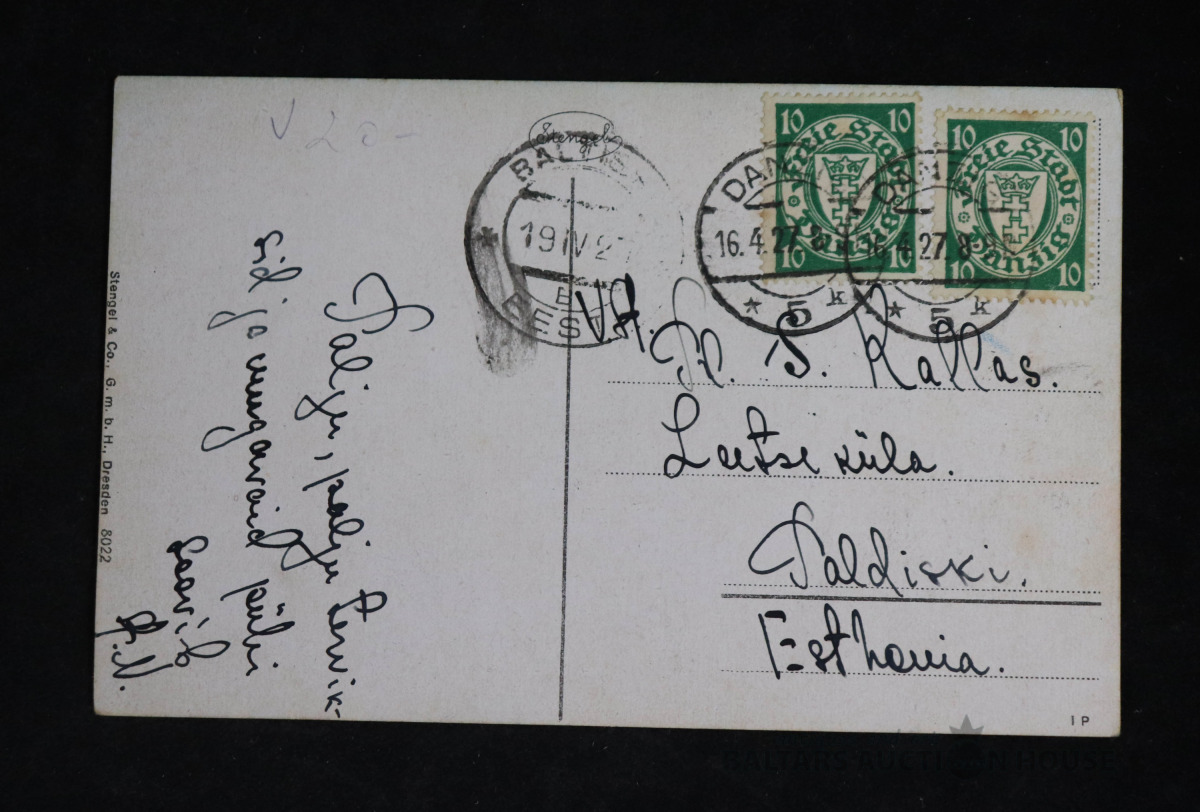 V 20-
Stengel
BALTISKI
19 IV 27
EESTI
10 10
Freie Stadt
Danzig
10 10
10 10
Freie Stadt
Danzig
10 10
DANZIG
16.4.27.8
* 5 k
DANZIG
16.4.27.8
* 5 k
Palju, palju tervik-
sid ja mugavaid pühi
soovib
A.N.
VA. Pr. S. Kallas.
Leetse küla.
Paldiski.
Esthonia.
Stengel & Co., G. m. b. H., Dresden 8022
IP
BALTARS AUCTION HOUSE